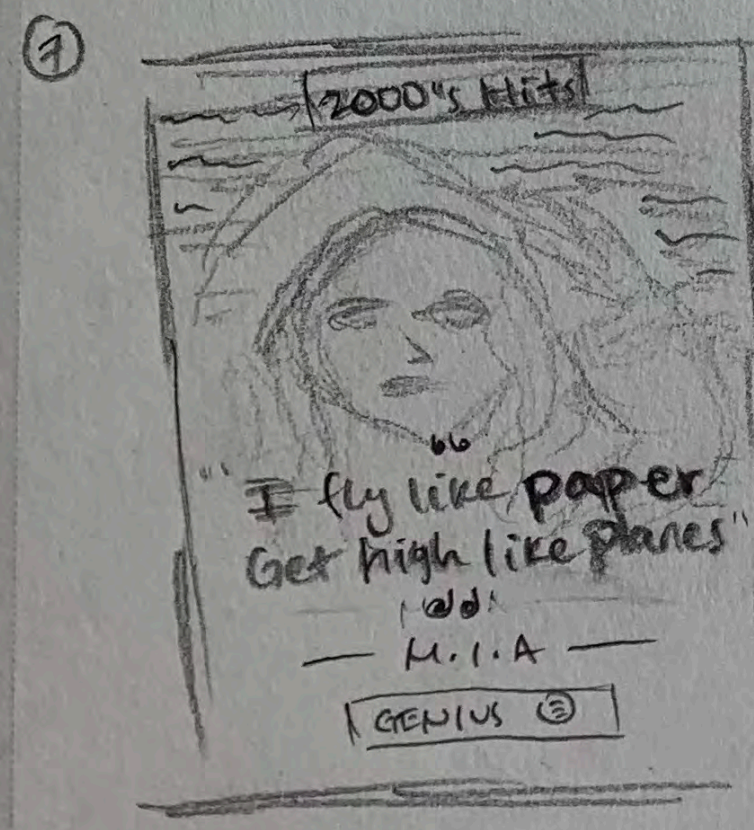 7
2000's Hits
“
"I fly like paper
Get high like planes"
”
— M.I.A —
GENIUS